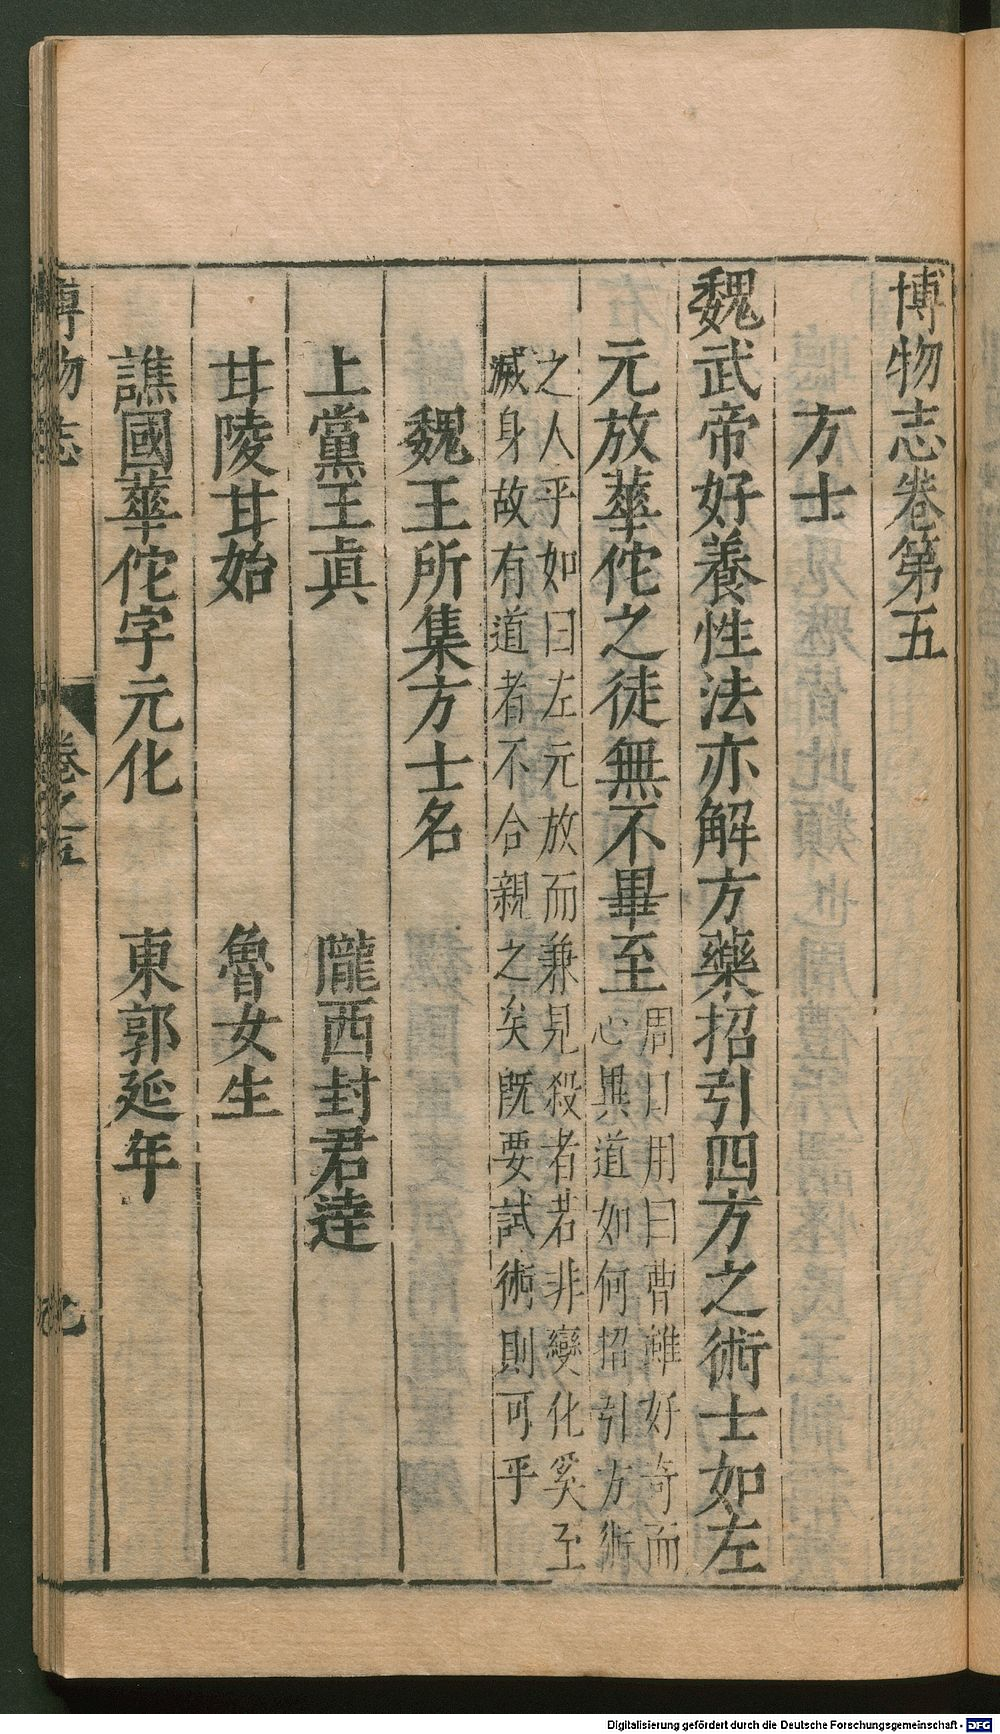 博物志卷第五
方士
魏武帝好養性法亦解方藥招引四方之術士如左
元放華佗之徒無不畢至
周日用曰曹雖好奇而
心異道如何招引方術
之人乎如曰左元放而兼見殺者若非變化奚至
滅身故有道者不合親之矣旣要試術則可乎
魏王所集方士名
上黨王眞 隴西封君達
甘陵甘始 魯女生
譙國華佗字元化 東郭延年
博物志 卷之五 九
Digitalisierung gefördert durch die Deutsche Forschungsgemeinschaft - DFG